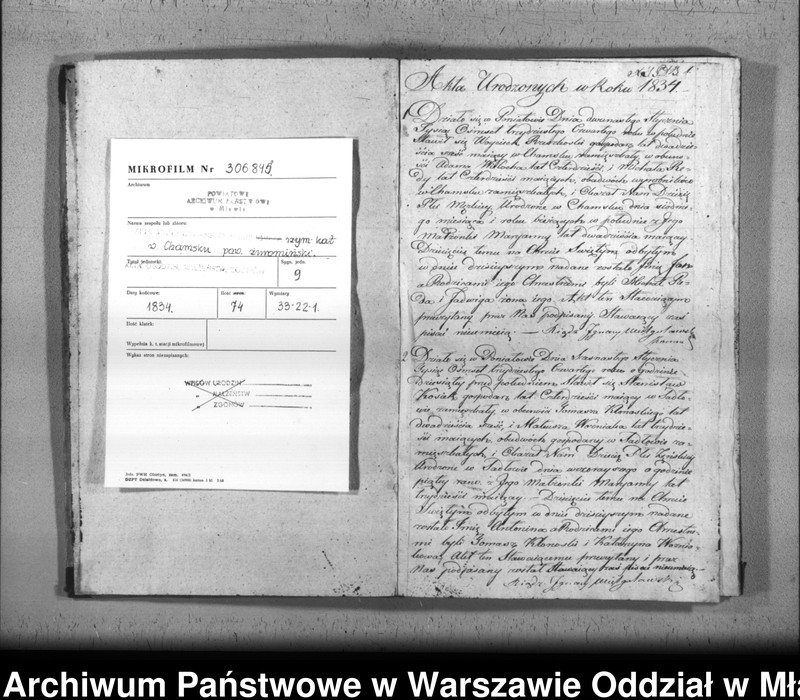 MIKROFILM Nr 306845
Archiwum
POWIATOWE
ARCHIWUM PAŃSTWOWE
w Mławie
Nazwa zespołu lub zbioru
rzym. kat
w Chamsku pow. żuromiński.
Tytuł jednostki
Sygn. jedn.
9
Daty końcowe:
1834.
Ilość
74
Wymiary
33-22-1.
Ilość klatek:
Wypełnia k. t. stacji mikrofilmowej
Wykaz stron nieczytelnych:
WPISÓW URODZIN
" MAŁŻEŃSTW
" ZGONÓW
Akta Urodzonych w Roku 1834
1. Działo się w Poniatowie Dnia dwunastego Stycznia
Tysiąc Ośmset trzydziestego Czwartego roku
Stawił się Woyciech gospodarz lat dwadzie-
ścia sześć maiący w Chamsku zamieszkały w obecno-
ści Adama lat Czterdzieści i Michała
lat Czterdzieści maiących, obudwóch
w Chamsku zamieszkałych, i Okazał Nam Dziecię
Płci Męzkiey Urodzone w Chamsku dnia siódme-
go miesiąca i roku bieżących w południe z Jego
Małżonki Maryanny lat dwadzieścia maiącey
Dziecięciu temu na Chrcie Świętym odbytym
w dniu dzisieyszym nadane zostało Imię Jan
a Rodzicami iego Chrzestnemi byli Michał
i Jadwiga żona iego. Akt ten Stawaiącemu
przeczytany przez Nas podpisany Stawaiący zaś
pisać nieumieią — Xiądz Ignacy
2. Działo się w Poniatowie Dnia Stycznia
Tysiąc Ośmset trzydziestego Czwartego roku o godzinie
dziesiątey przed południem Stawił się Stanisław
Kosiak gospodarz lat Czterdzieści maiący w Sadło-
wie zamieszkały, w obecności Tomasza Kłonoskiego lat
dwadzieścia sześć, i Mateusza Woźniaka lat trzydzie-
ści maiących, obudwóch gospodarzy w Sadłowie za-
mieszkałych, i Okazał Nam Dziecię Płci Żeńskiey
Urodzone w Sadłowie dnia wczorayszego o godzinie
piątey rano z Jego Małżonki Maryanny lat
trzydzieści maiącey. Dziecięciu temu na Chrcie
Świętym odbytym w dniu dzisieyszym nadane
zostało Imię Antonina a Rodzicami iego Chrzestne-
mi byli Tomasz Kłonoski i Katarzyna
Akt ten Stawaiącemu przeczytany i przez
Nas podpisany został Stawaiący zaś pisać nieumieią
Xiądz Ignacy
Archiwum Państwowe w Warszawie Oddział w Mła